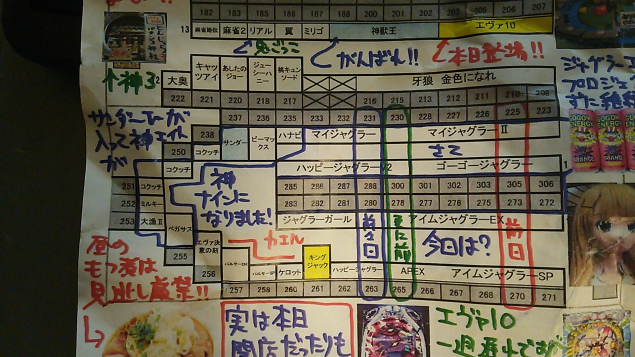 182 183 184 185 186 187 188 200 201 202 203 205 206 207 208
13 麻雀姫伝 麻雀2 リアル 翼 ミリゴ 神獣王 エヴァ10
鬼ごっこ がんばれ!! 本日登場!!
個神3
2 大奥 キャッツアイ あしたのジョー ジューシーハニー 桃キュンソード 牙狼 金色になれ
222 221 220 218 217 216 215 213 212 211 210 208
サンダーVが入って神エイトが
238 237 236 235 233 232 231 230 228 227 226 225 223
コクッチ サンダー ビーマックス ハナビ マイジャグラー マイジャグラーⅡ
250 さて
コクッチ ハッピージャグラーV2 ゴーゴージャグラー 1
251 コクッチ
252 ミルキー
253 大漁Ⅱ ペガサス
神ナインになりました!
285 286 287 288 300 301 302 303 305 306
283 282 281 280 278 277 276 275 273 272
ジャグラーガール アイムジャグラーEX
前々日 更に前 今日は? 前日
255 エヴァ決意の刻 カエル
256 パルサーDX パルサーSP ケロット キングジャック ハッピージャグラー APEX アイムジャグラーSP
257 258 260 261 262 263 265 266 267 268 270 271
昼のもつ煮は見逃し厳禁!!
実は本日
開店だったりも
エヴァ10
一週
ジャグラーで
プロジェ